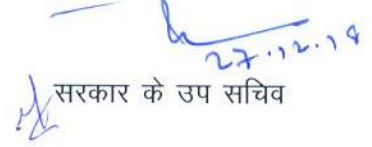 27.12.18
सरकार के उप सचिव